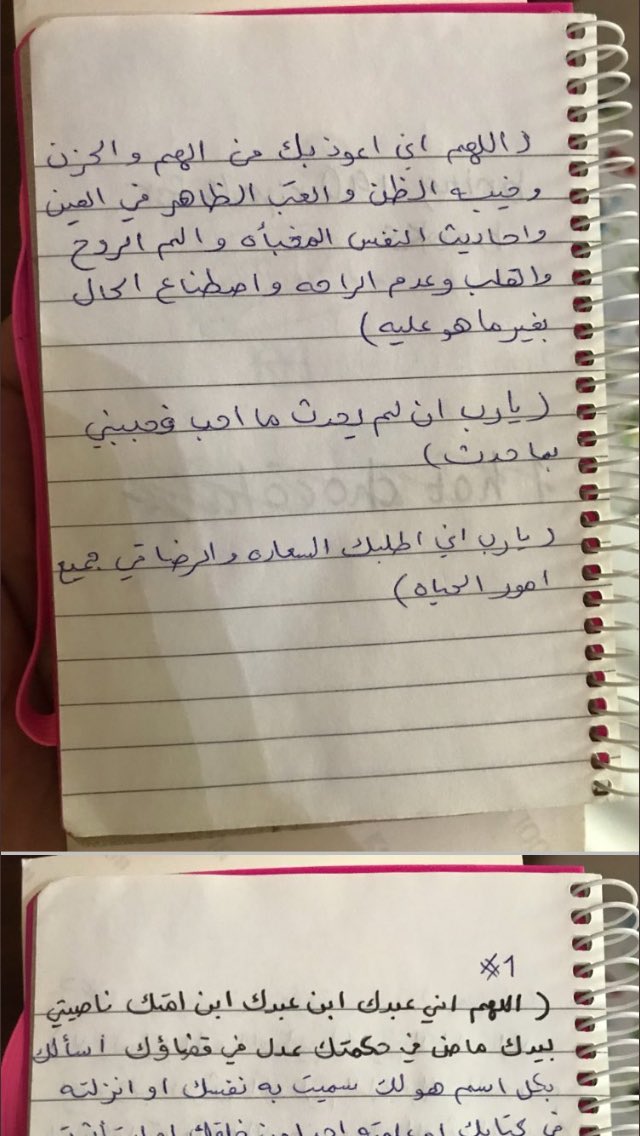 (اللهم اني اعوذ بك من الهم والحزن
وخيبه الظن والعتب الظاهر في العين
واحاديث النفس المخبأه والم الروح
والقلب وعدم الراحه واصطناع الحال
بغير ما هو عليه)
(يارب ان لم يحدث ما احب فحببني
بما حدث)
(يارب اني اطلبك السعاده والرضا في جميع
امور الحياه)
#1
(اللهم اني عبدك ابن عبدك ابن امتك ناصيتي
بيدك ماض في حكمتك عدل في قضاؤك أسألك
بكل اسم هو لك سميت به نفسك او انزلته
في كتابك او علمته احد من خلقك او استأثرت